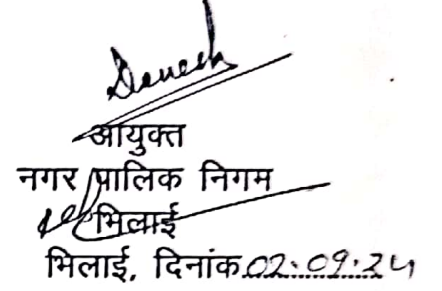 आयुक्त
नगर पालिक निगम
भिलाई
भिलाई, दिनांक 02.09.24